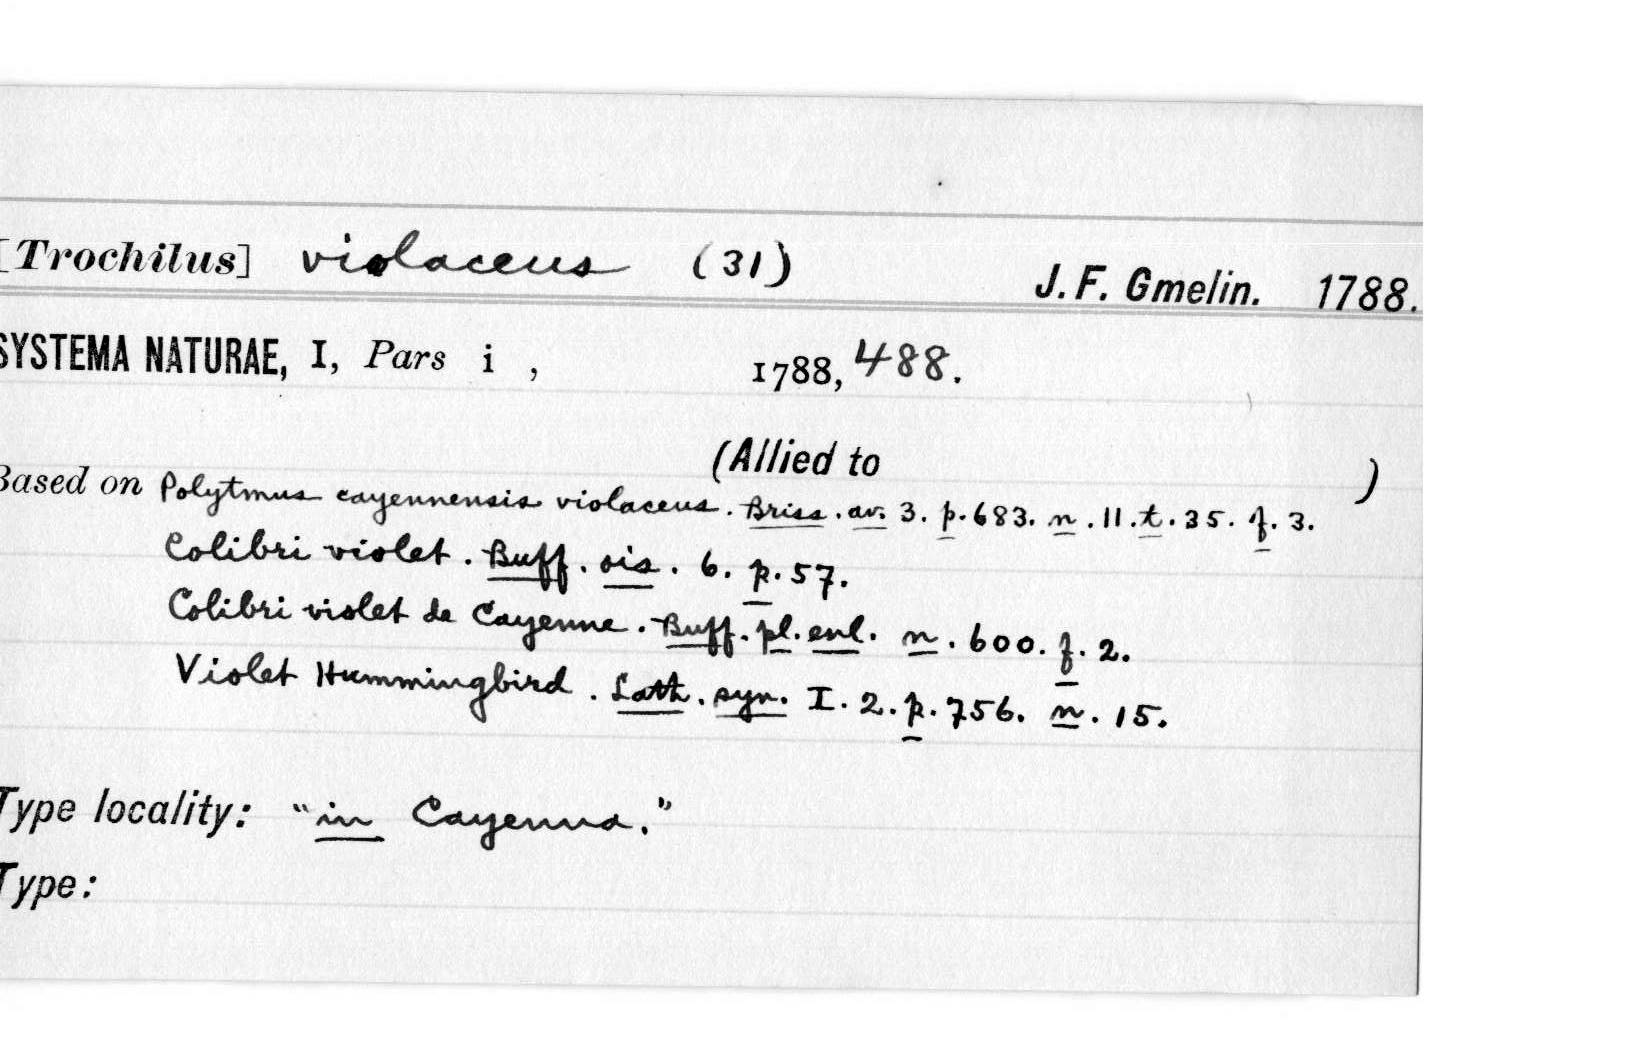 [Trochilus] violaceus (31) J. F. Gmelin. 1788.
SYSTEMA NATURAE, I, Pars i , 1788, 488.
(Allied to )
Based on Polytmus cayennensis violaceus. Briss. av. 3. p. 683. n. 11. t. 35. f. 3.
Colibri violet. Buff. ois. 6. p. 57.
Colibri violet de Cayenne. Buff. pl. enl. n. 600. f. 2.
Violet Hummingbird. Lath. syn. I. 2. p. 756. n. 15.
Type locality: "in Cayenna."
Type: